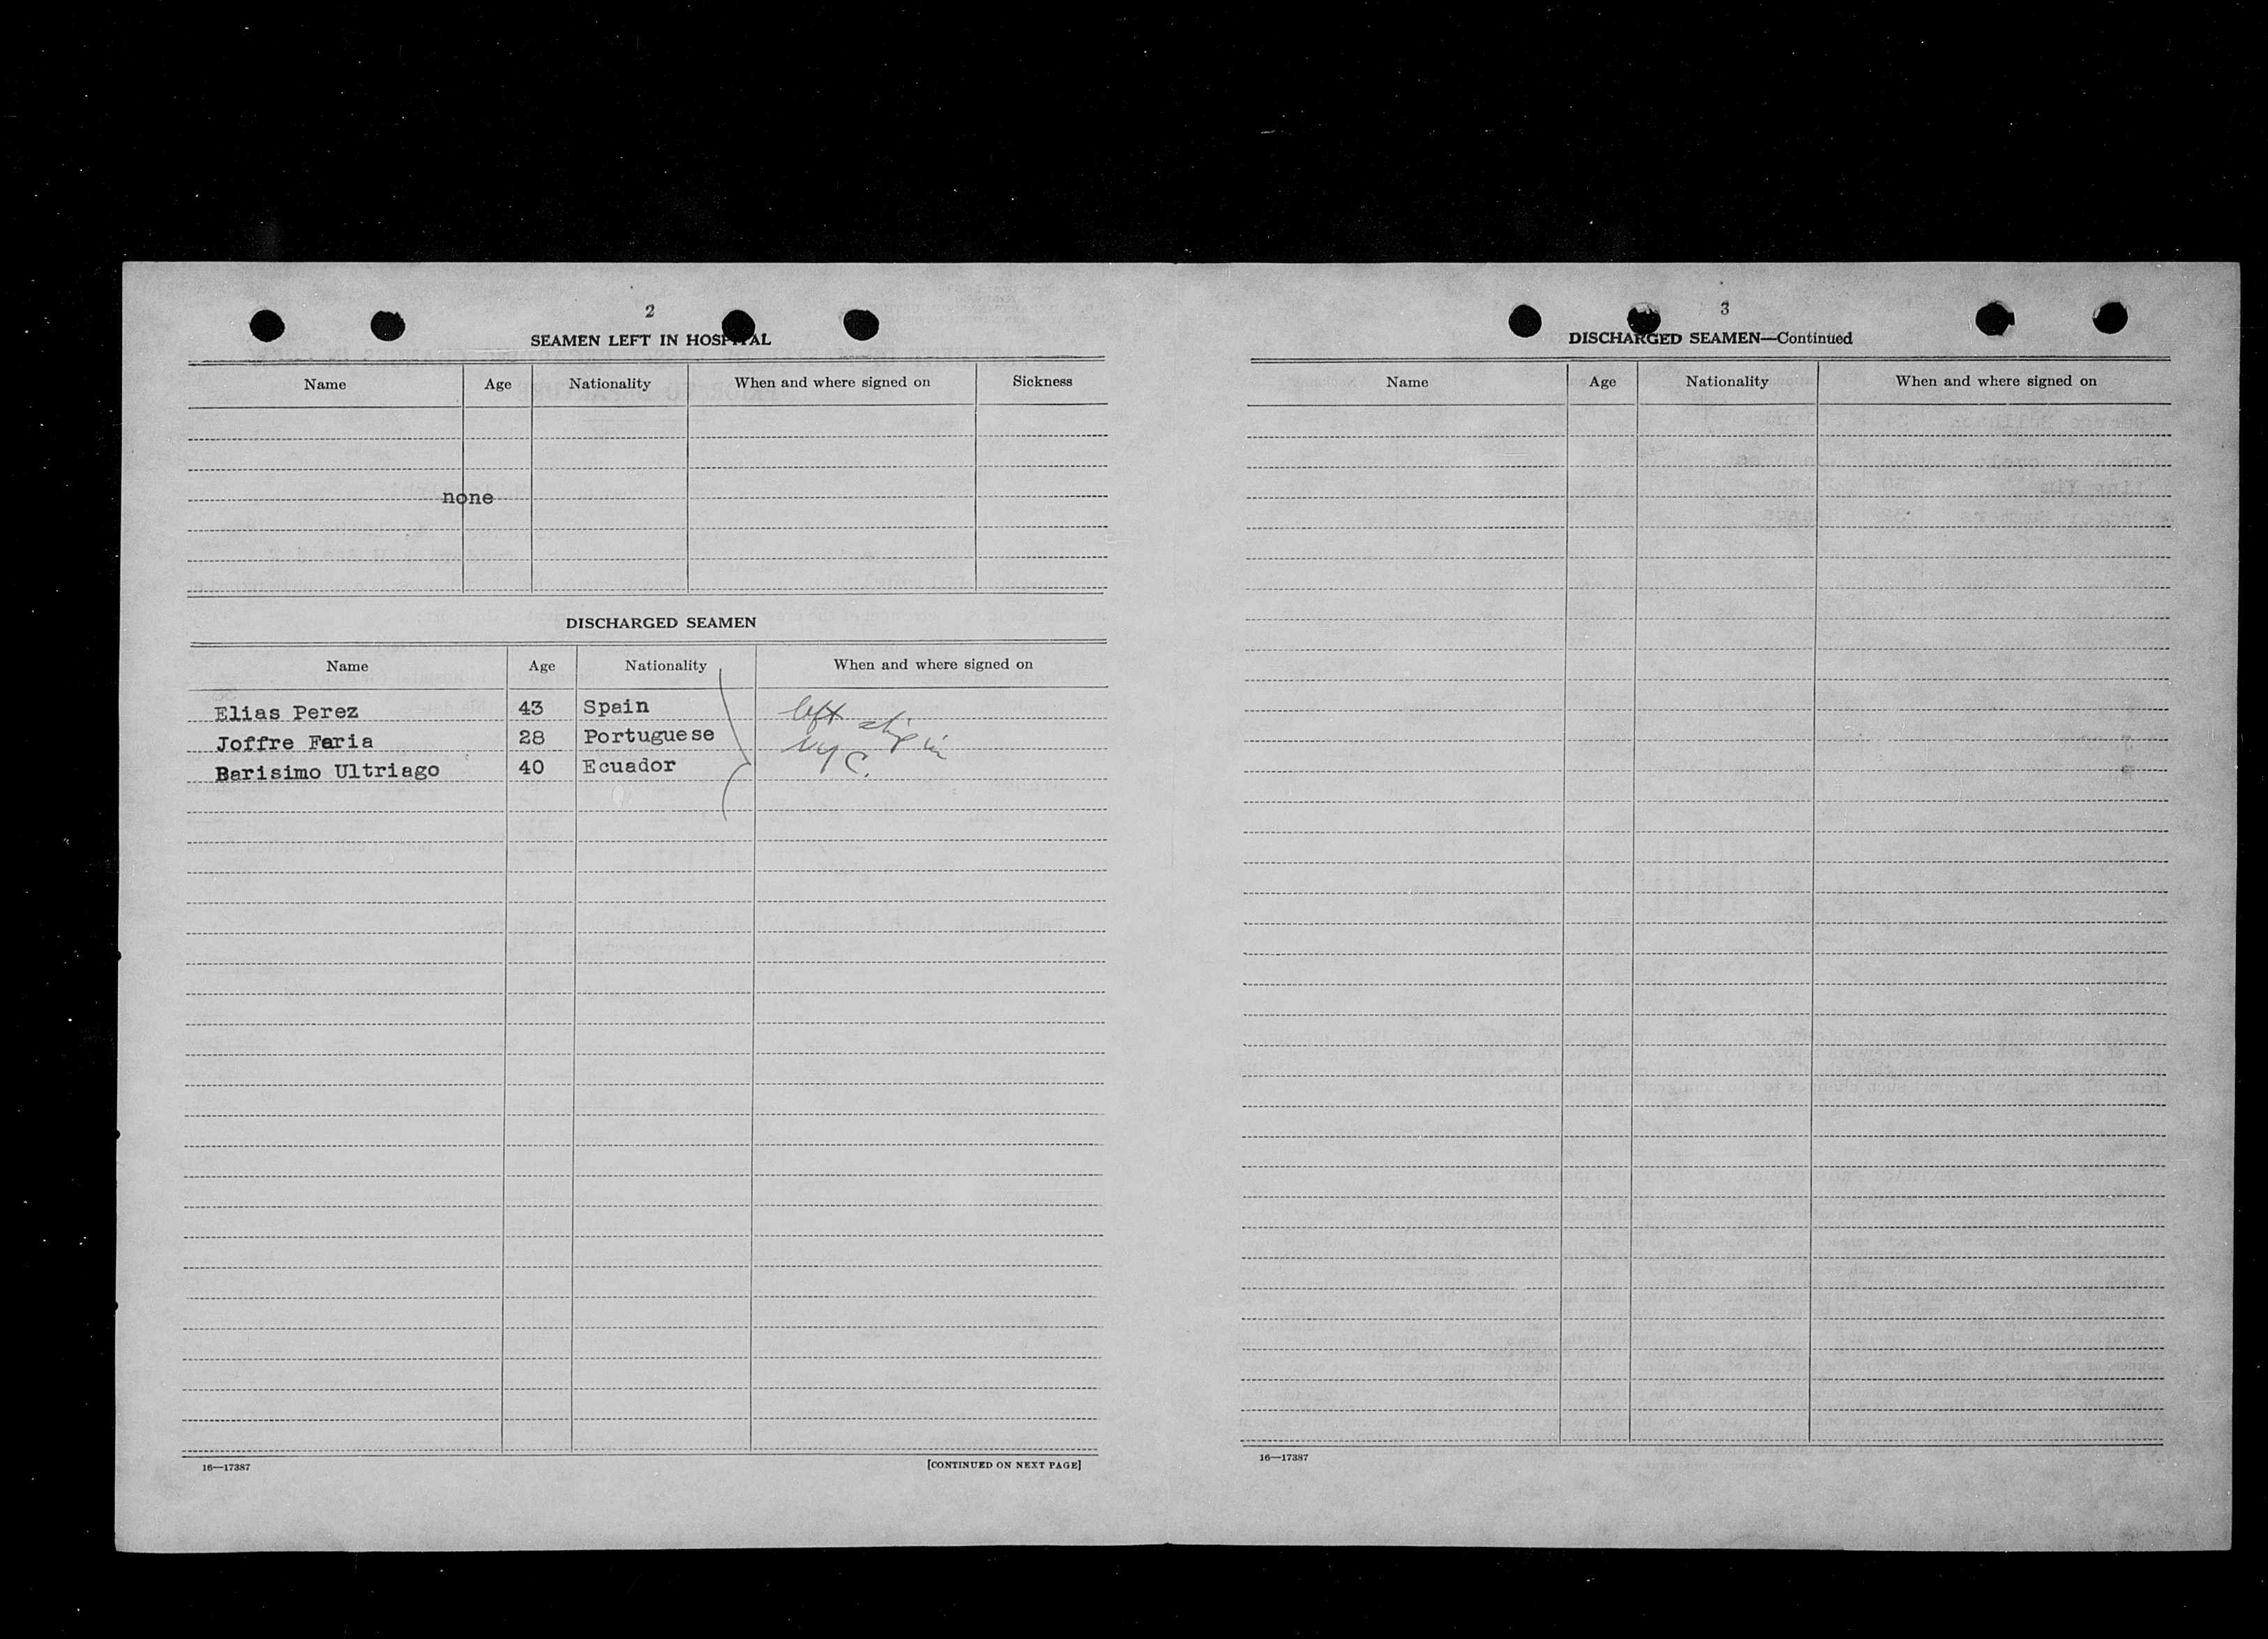 2
SEAMEN LEFT IN HOSPITAL
Name Age Nationality When and where signed on Sickness
none
DISCHARGED SEAMEN
Name Age Nationality When and where signed on
Elias Perez 43 Spain left ship in
Joffre Faria 28 Portuguese NYC.
Barisimo Ultriago 40 Ecuador
16—17387 [CONTINUED ON NEXT PAGE]
3
DISCHARGED SEAMEN—Continued
Name Age Nationality When and where signed on
16—17387